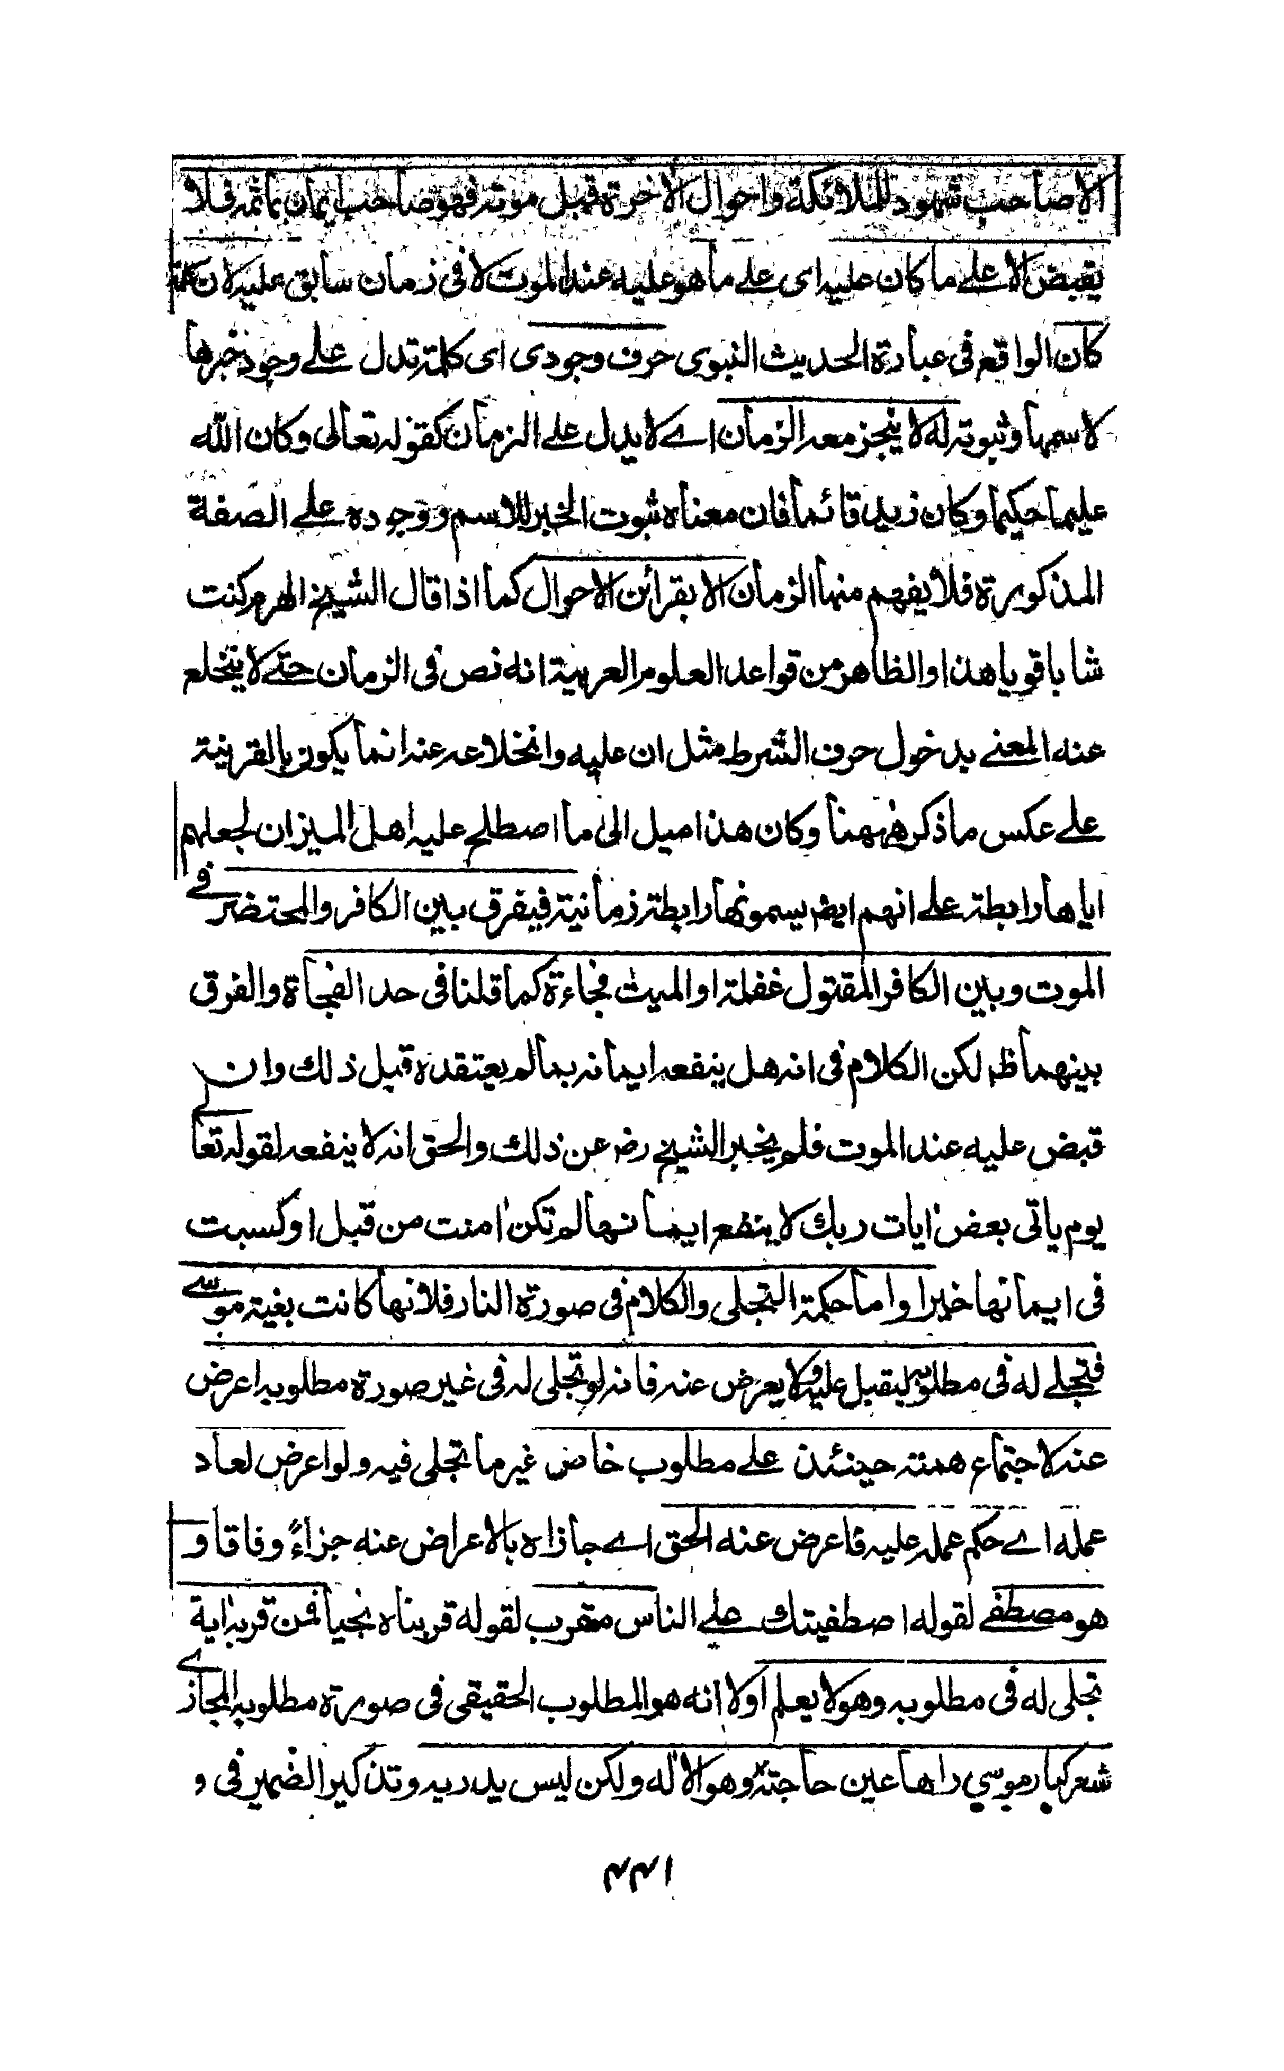 الا صاحب شهود للملائكة واحوال الاخرة قبل موته فهو صاحب ايمان بما ثمه فلا
يقبض الا علے ما كان عليه اى علے ما هو عليه عند الموت لا فى زمان سابق عليه لان كلمة
كان الواقع فى عبارة الحديث النبوى حرف وجودى اى كلمة تدل علے وجود خبرها
لاسمها وثبوته له لا ينجز معه الزمان اے لا يدل علے الزمان كقوله تعالى وكان الله
عليما حكيما وكان زيد قائما فان معناه ثبوت الخبر للاسم ووجوده علے الصفة
المذكورة فلا يفهم منها الزمان الا بقرائن الاحوال كما اذا قال الشيخ الهرم كنت
شابا قويا هذا والظاهر من قواعد العلوم العربية انه نص فى الزمان حتے لا ينخلع
عنه المعنے بدخول حرف الشرط مثل ان عليه وانخلاعه عنه انما يكون بالقرينة
علے عكس ما ذكر ههنا وكان هذا ميل الى ما اصطلح عليه اهل الميزان لجعلهم
اياها رابطة علے انهم ايضا يسمونها رابطة زمانية فيفرق بين الكافر والمحتضر فے
الموت وبين الكافر المقتول غفلة او الميت فجاءة كما قلنا فى حد الفجأة والفرق
بينهما ظه لكن الكلام فى انه هل ينفعه ايمانه بما لم يعتقده قبل ذلك وان
قبض عليه عند الموت فلم يخبر الشيخ رضه عن ذلك والحق انه لا ينفعه لقوله تعالے
يوم ياتى بعض ايات ربك لا ينفع ايمانها لم تكن امنت من قبل او كسبت
فى ايمانها خيرا واما حكمة التجلى والكلام فى صورة النار فلانها كانت بغية موسے
فتجلے له فى مطلوبه ليقبل عليه ولا يعرض عنه فانه لو تجلى له فى غير صورة مطلوبه اعرض
عنه لاجتماع همته حينئذ علے مطلوب خاص غير ما تجلى فيه ولو اعرض لعاد
عمله اے حكم عمله عليه فاعرض عنه الحق اے جازاه بالاعراض عنه جزاءً وفاقا و
هو مصطفے لقوله اصطفيتك علے الناس مقرب لقوله قربناه نجيا فمن قربه اية
تجلى له فى مطلوبه وهو لا يعلم اولا انه هو المطلوب الحقيقى فى صورة مطلوبه المجازے
شعر كنار موسي راها عين حاجته وهو الاله ولكن ليس يدريه وتذكير الضمير فى و